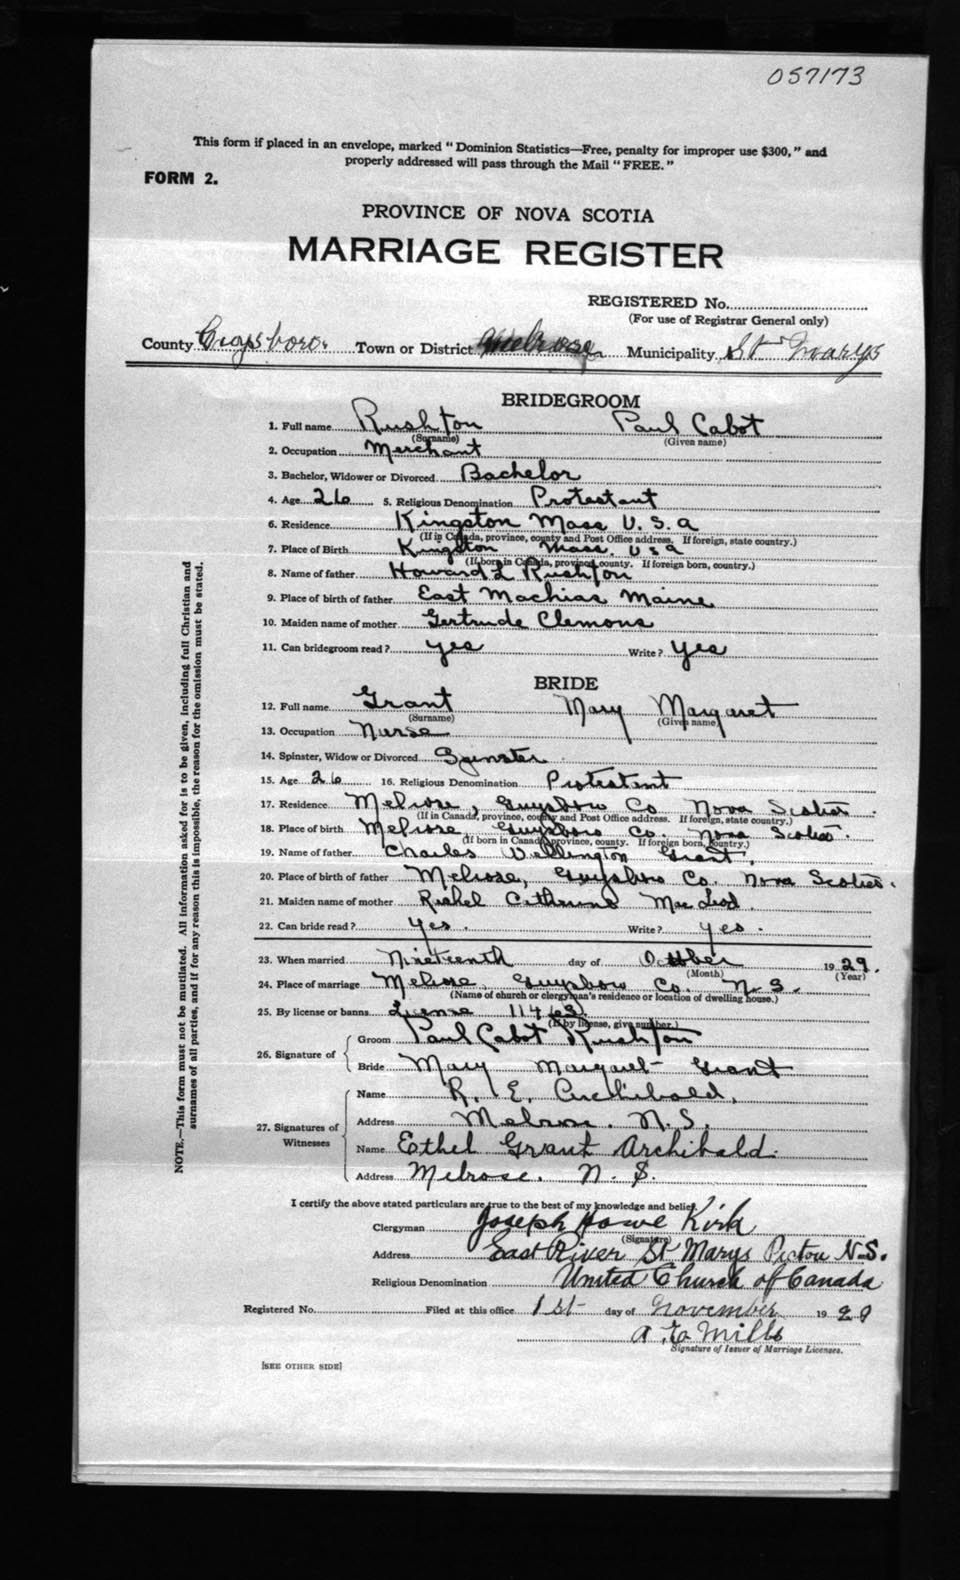 057173
This form if placed in an envelope, marked “Dominion Statistics—Free, penalty for improper use $300,” and
properly addressed will pass through the Mail “FREE.”
FORM 2.
PROVINCE OF NOVA SCOTIA
MARRIAGE REGISTER
REGISTERED No.
(For use of Registrar General only)
County Guysboro. Town or District Melrose Municipality St Marys
BRIDEGROOM
1. Full name Rushton Paul Cabot
(Surname) (Given name)
2. Occupation Merchant
3. Bachelor, Widower or Divorced Bachelor
4. Age 26 5. Religious Denomination Protestant
6. Residence Kingston Mass U.S.a
(If in Canada, province, county and Post Office address. If foreign, state country.)
7. Place of Birth Kingston Mass. U S a
(If born in Canada, province, county. If foreign born, country.)
8. Name of father Howard L Rushton
9. Place of birth of father East Machias Maine
10. Maiden name of mother Gertrude Clemons
11. Can bridegroom read? yes Write? Yes
BRIDE
12. Full name Grant Mary Margaret
(Surname) (Given name)
13. Occupation Nurse
14. Spinster, Widow or Divorced Spinster
15. Age 26 16. Religious Denomination Protestent
17. Residence Melrose, Guysboro Co Nova Scotia
(If in Canada, province, county and Post Office address. If foreign, state country.)
18. Place of birth Melrose Guysboro Co. Nova Scotia.
(If born in Canada, province, county. If foreign born, country.)
19. Name of father Charles Wellington Grant.
20. Place of birth of father Melrose, Guysboro Co. Nova Scotia.
21. Maiden name of mother Rachel Catherine MacLeod.
22. Can bride read? Yes. Write? yes.
23. When married Nineteenth day of October 1929.
(Month) (Year)
24. Place of marriage Melrose, Guysboro Co. N.S.
(Name of church or clergyman's residence or location of dwelling house.)
25. By license or banns License 11463
(If by license, give number.)
26. Signature of
Groom Paul Cabot Rushton
Bride Mary Margaret Grant
27. Signatures of Witnesses
Name R. E. Archibald.
Address Melrose. N.S.
Name Ethel Grant Archibald.
Address Melrose. N. S.
I certify the above stated particulars are true to the best of my knowledge and belief.
Clergyman Joseph Howe Kirk
(Signature)
Address East River St Marys Pictou N.S.
Religious Denomination United Church of Canada
Registered No. Filed at this office 1st day of November 1929
A. Mills
Signature of Issuer of Marriage Licenses.
[SEE OTHER SIDE]
NOTE.—This form must not be mutilated. All information asked for is to be given, including full Christian and
surnames of all parties, and if for any reason this is impossible, the reason for the omission must be stated.